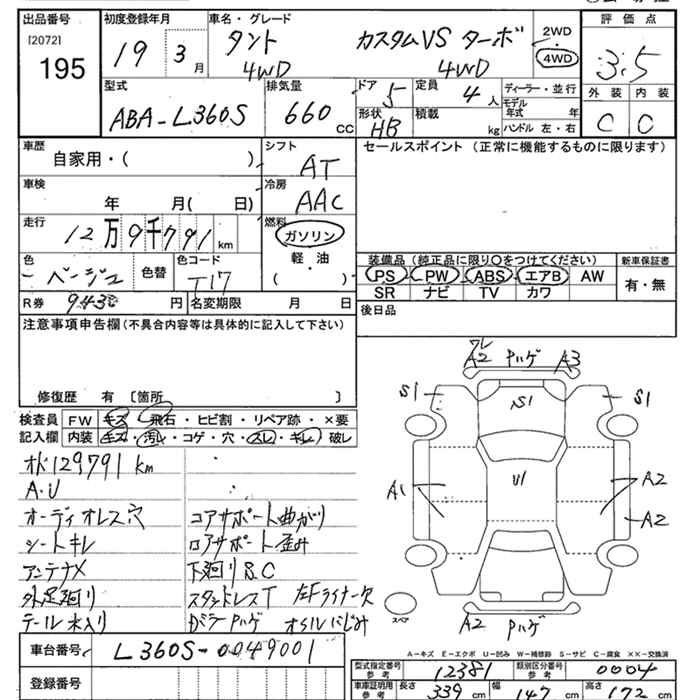 出品番号 [2072] 195
初度登録年月 19 3 月
車名・グレード タント カスタムVS ターボ
4WD 4WD
2WD
4WD
評価点 3.5
外装 内装
C C
型式 ABA-L360S
排気量 660 CC
ドア 5
定員 4 人
形状 HB
積載 kg
ディーラー・並行
モデル年式 年
ハンドル 左・右
車歴 自家用・( )
シフト AT
セールスポイント (正常に機能するものに限ります)
車検 年 月( 日)
冷房 AAC
走行 12万9千791 km
燃料 ガソリン
軽・油
( )
色 ベージュ 色替
色コード T17
装備品 (純正品に限り○をつけてください)
PS PW ABS エアB AW
SR ナビ TV カワ
新車保証書
有・無
R券 9430 円 名変期限 月 日
後日品
注意事項申告欄 (不具合内容等は具体的に記入して下さい)
修復歴 有 [箇所 ]
検査員記入欄
FW キズ・飛石・ヒビ割・リペア跡・×要
内装 キズ・汚レ・コゲ・穴・スレ・キレ・破レ
オド129791 km
A・U
オーディオレス穴 コアサポート曲がり
シートキレ ロアサポート歪み
アンテナメ 下廻りS.C
外足廻り スタッドレスT 左Fライナー欠
テール水入り Gガラ Pハゲ オイルにじみ
ワレ
A2 Pハゲ A3
S1 S1 S1
A1 U1 A2
A2
スペア A2 Pハゲ
A-キズ E-エクボ U-凹み W-補修跡 S-サビ C-腐食 XX-交換済
車台番号 L360S-0049001
登録番号
型式指定番号 参考 12381
類別区分番号 参考 0004
車庫証明用 参考 長さ 339 cm 幅 147 cm 高さ 172 cm